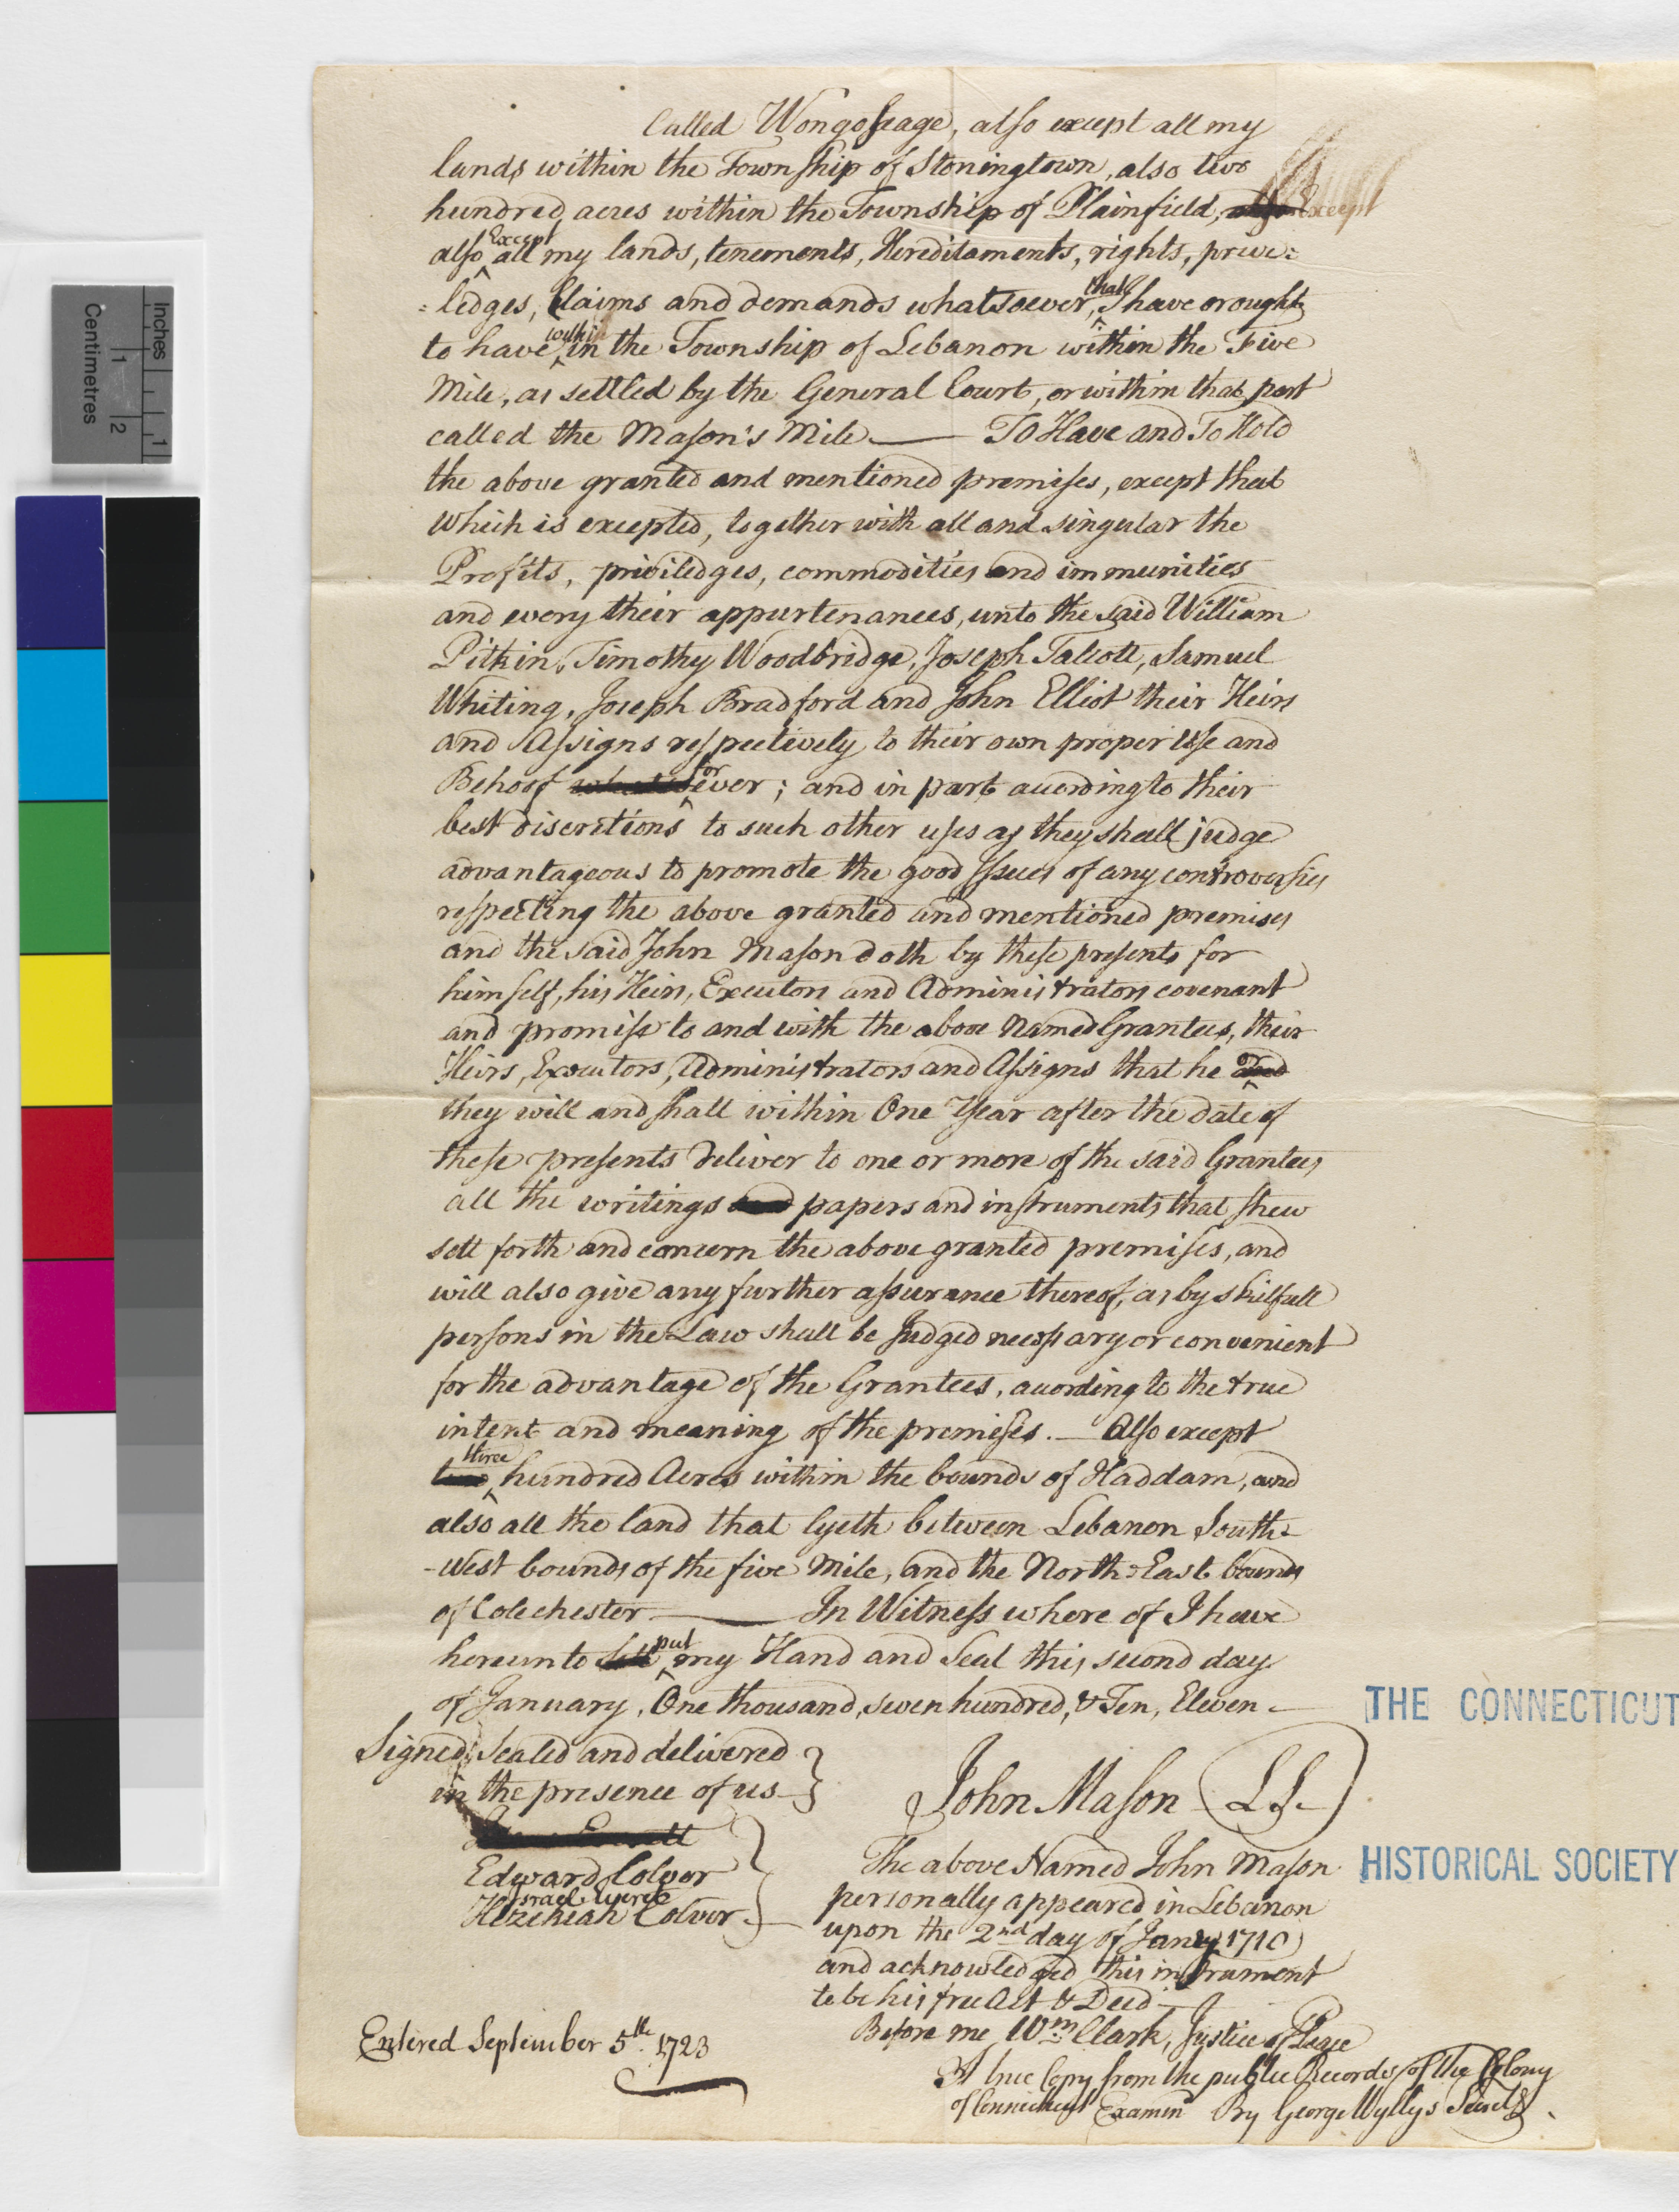 Called Wongoseage, also except all my
lands within the Township of Stoningtown, also two
hundred acres within the Township of Plainfield, except
also Except all my lands, tenements, Hereditaments, rights, prive=
=ledges, Claims and demands whatsoever, that I have or ought
to have within in the Township of Lebanon within the Five
Mile, as settled by the General Court, or within that part
called the Mason's Mile — To Have and To Hold
the above granted and mentioned premises, except that
which is excepted, together with all and singular the
Profits, priviledges, commodities and immunities
and every their appurtenances, unto the said William
Pitkin, Timothy Woodbridge, Joseph Talcott, Samuel
Whiting, Joseph Bradford and John Elliot their Heirs
and Assigns respectively to their own proper Use and
Behoof for ever; and in part according to their
best discretions to such other uses as they shall judge
advantageous to promote the good Issues of any controversies
respecting the above granted and mentioned premises
and the said John Mason doth by these presents for
himself, his Heirs, Executors and Administrators covenant
and promise to and with the above Named Grantees, their
Heirs, Executors, Administrators and Assigns that he and or
they will and shall within One Year after the date of
these presents deliver to one or more of the said Grantees
all the writings and papers and instruments that shew
sett forth and concern the above granted premises, and
will also give any further assurance thereof, as by skilfull
persons in the Law shall be Judged necessary or convenient
for the advantage of the Grantees, according to the true
intent and meaning of the premises. — Also except
two three hundred Acres within the bounds of Haddam, and
also all the land that lyeth between Lebanon South=
-West bounds of the five Mile, and the North=East bounds
of Colechester — In Witness where of I have
hereunto Sett put my Hand and Seal this second day
of January, One thousand, seven hundred, & Ten, Eleven —
Signed, Sealed and delivered
in the presence of us
John Mason (LS)
Edward Colver
Israel
Hezekiah Colver
The above Named John Mason
personally appeared in Lebanon
upon the 2nd day of Jany 1710
and acknowledged this instrument
to be his free Act & Deed —
Before me Wm Clark, Justice of Peace
Entered September 5th 1723
A true Copy from the public Records of the Colony
of Connecticut Examind By George Wyllys Secrety
THE CONNECTICUT
HISTORICAL SOCIETY
Inches
1
Centimetres
1
2